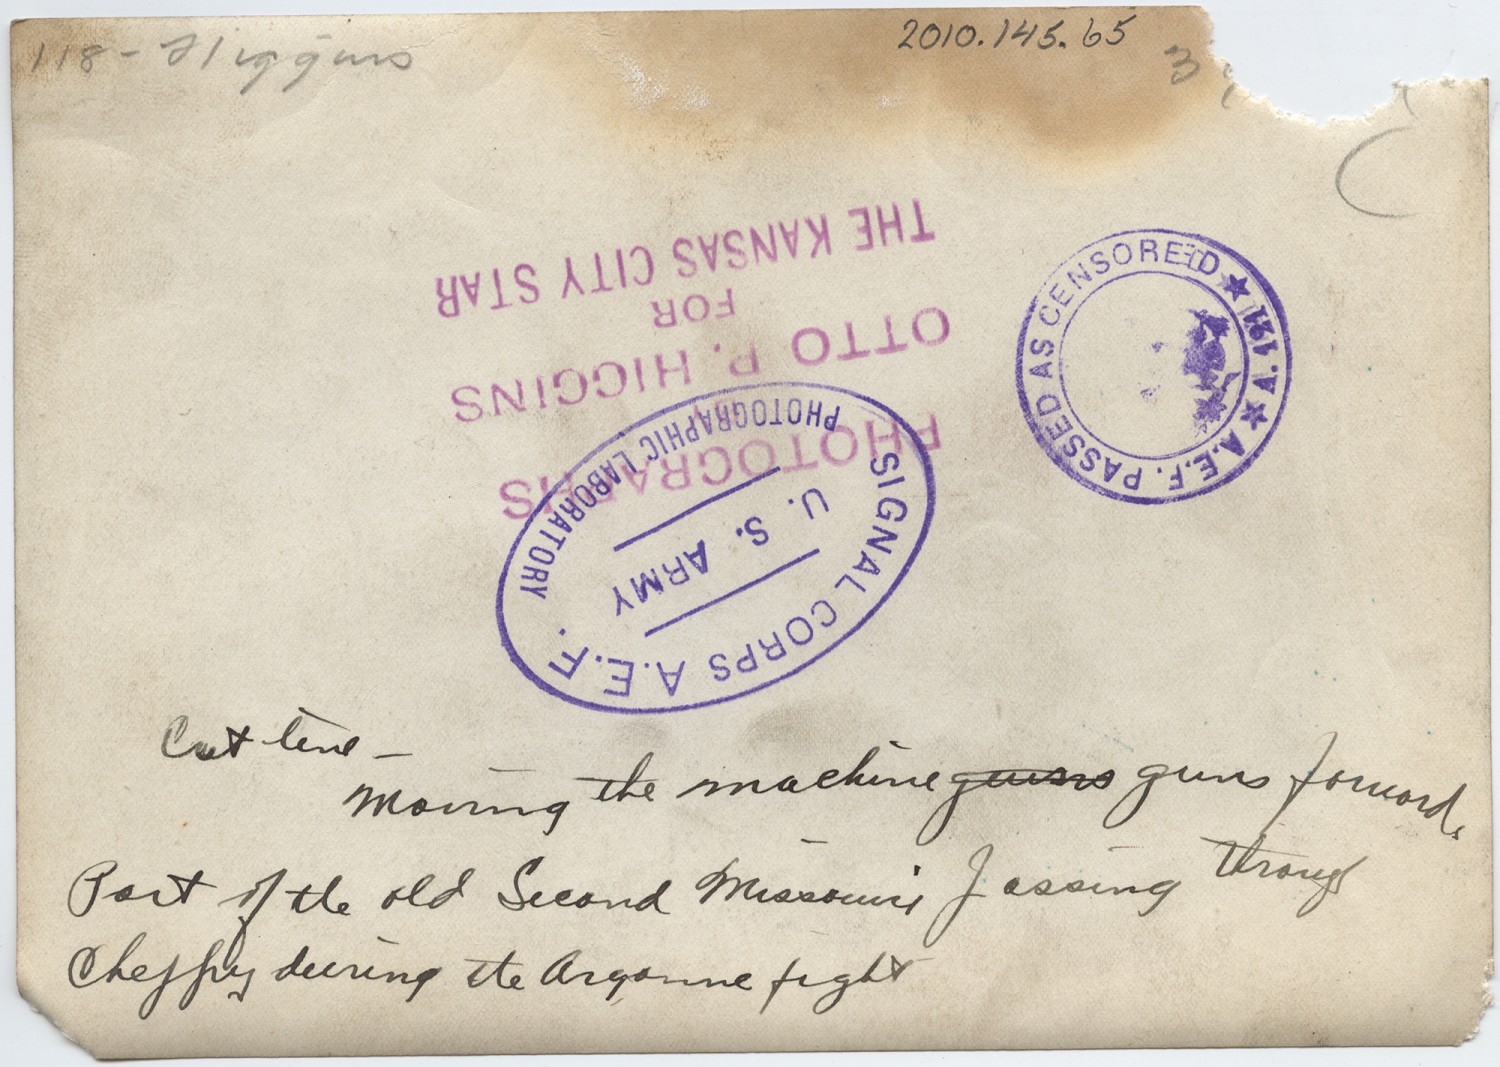 118 - Higgins
2010.145.65
3
PHOTOGRAPHS
BY
OTTO P. HIGGINS
FOR
THE KANSAS CITY STAR
A.E.F. PASSED AS CENSORED ★ A.191 ★
SIGNAL CORPS A.E.F.
U. S. ARMY
PHOTOGRAPHIC LABORATORY
Cut line -
Moving the machine guns guns forward.
Part of the old Second Missouri passing through
Cheppy during the Argonne fight